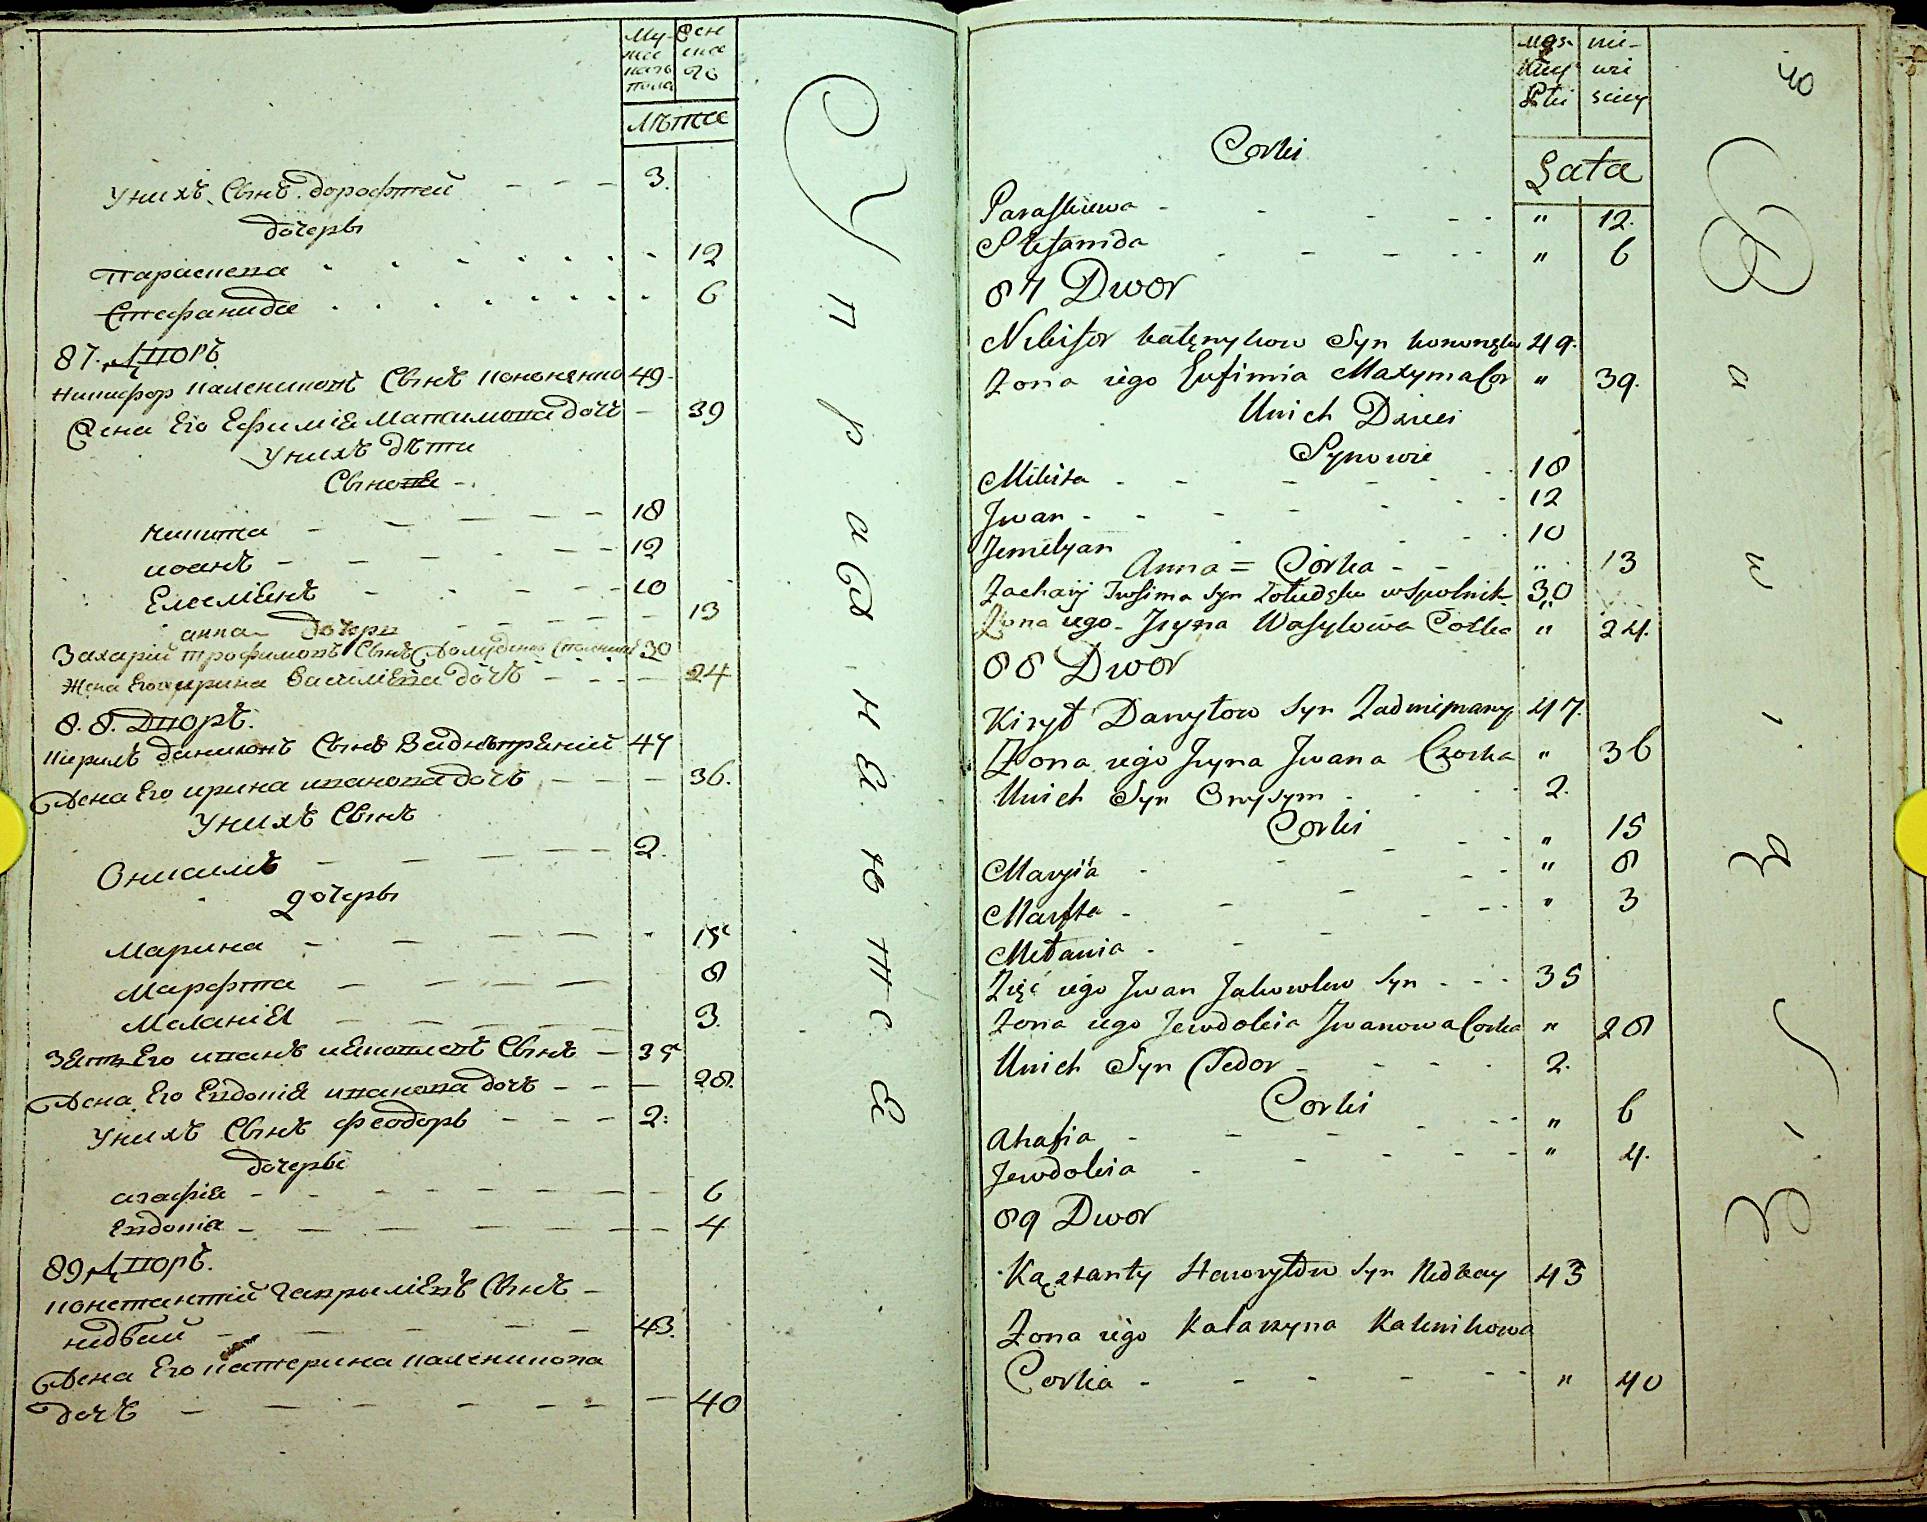 Му- Жен
жес ска
каго го
пола
Лѣта
У нихъ Сынъ Дорофтей - - - 3.
дочеры
Параскева - - - 12
Стефанида - - - 6
87. Дворъ
Никифор Калениковъ Сынъ Кононенко 49
Жена Его Ефимія Максимова дочь - 39
У нихъ дѣти
Сынове -
Никита - - - 18
Иоанъ - - - 12
Емелиянъ - - - 10
анна дочери - - - 13
Захарій трофимовъ Сынъ 30
Жена Его ирина Василіева дочь - - - 24
88. Дворъ.
Кирилъ Даниловъ Сынъ Заднѣпряний 47
Жена Его ирина иванова дочь - - - 36.
У нихъ Сынъ
Онисимъ - - - 2.
дочеры
Марина - - - 15
Марфта - - - 8
Меланія - - - 3.
Зять Его иванъ иаковлевъ Сынъ - 35
Жена Его Евдокія иванова дочь - - - 28.
У нихъ Сынъ феодоръ - - - 2.
дочеры
агафія - - - 6
Евдокия - - - 4
89 Дворъ.
Константий Гаврилиевъ Сынъ -
недбай - - - 43.
Жена Его Катерина Каленикова
дочъ - - - 40
У п р а в л я ю т с я
40
męs- nie-
kiey wie
Płci sciey
Łata
Corki
Paraskiewa - - - " 12.
Stefanida - - - " 6
87 Dwor
Nikifor Kałęnykow Syn kononęko 49.
Zona iego Eufimia Maxyma Cor " 39.
Unich Dzieci
Synowie
Mikita - - - 18
Jwan - - - 12
Jemelyan - - - 10
Anna = Córka - - " 13
Zachary Syn wspolnik 30
Zona iego Jryna Wasylowa Corka " 24.
88 Dwor
Kirył Danyłow Syn Zadniprany 47.
Zona iego Jryna Jwana Corka " 36
Unich Syn Onysym - - - 2.
Corki
Maryia - - - " 15
Marfta - - - " 8
Mełania - - - " 3
Zięć iego Jwan Jakowlew Syn - - - 35
Zona iego Jewdokia Jwanowa Corka " 28
Unich Syn Fedor - - - 2.
Corki
Ahafia - - - " 6
Jewdokia - - - " 4.
89 Dwor
Kąstanty Hawryłow Syn Nedbay 43
Zona iego Katarzyna Kalenikowa
Corka - - - " 40